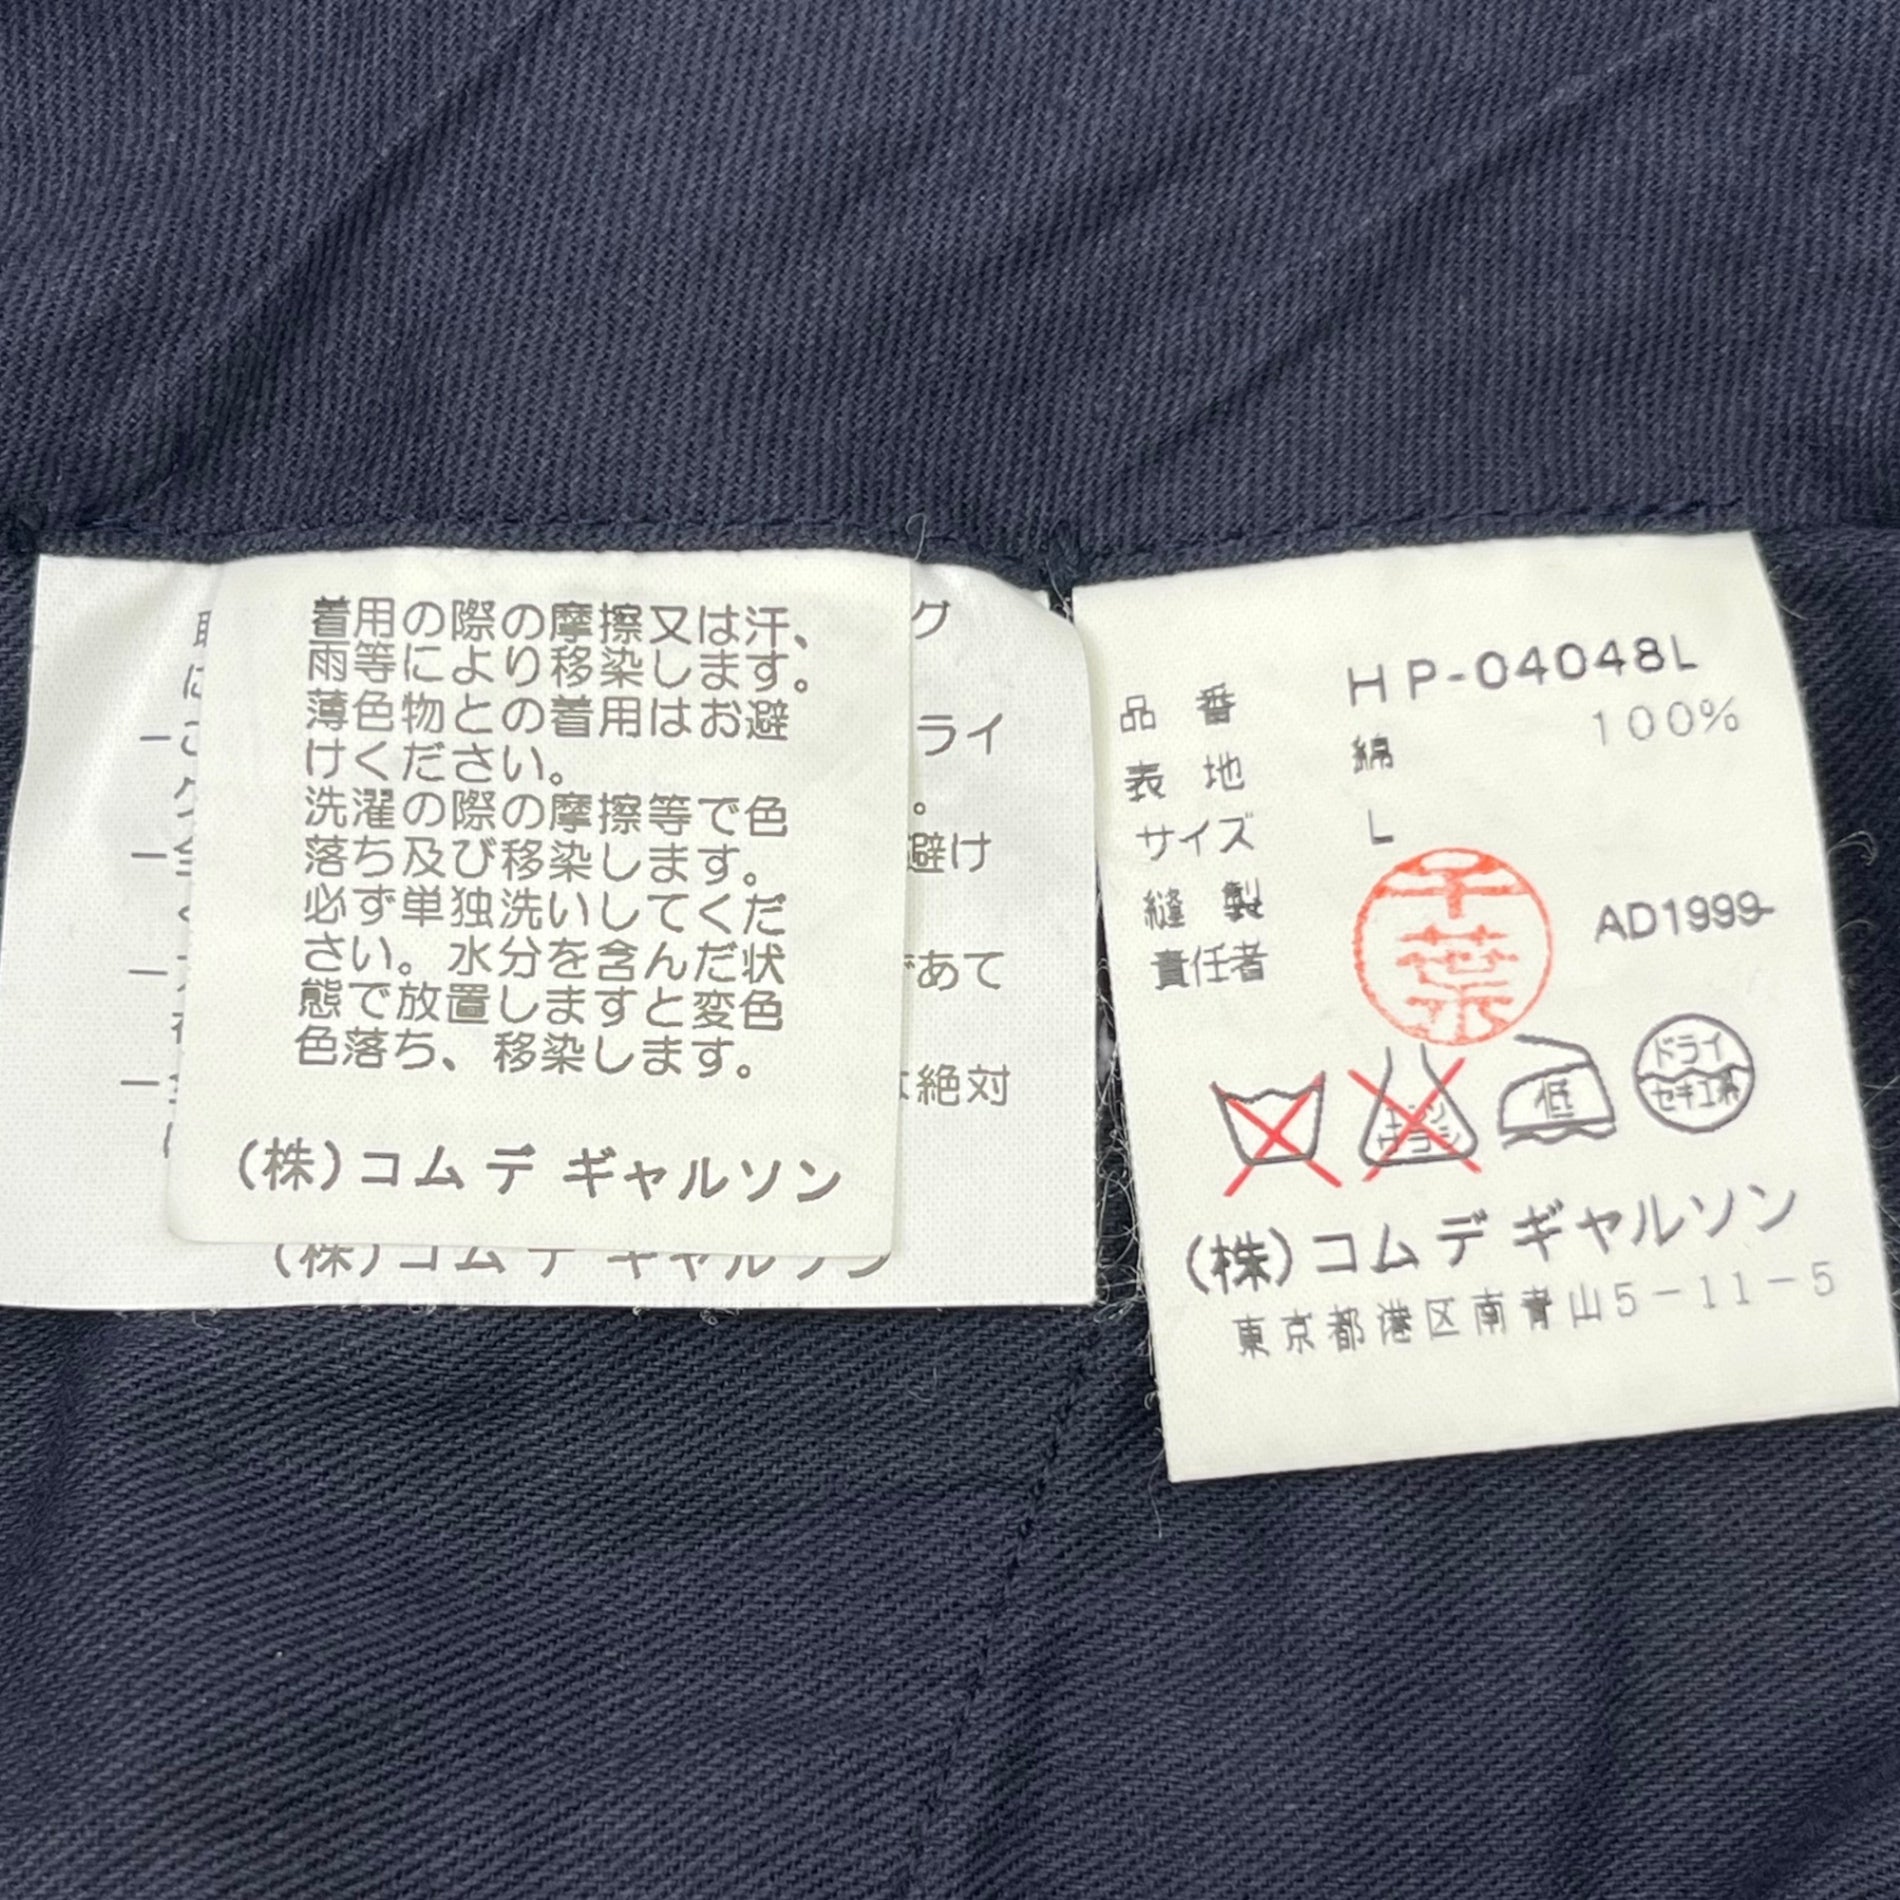 着用の際の摩擦又は汗、
雨等により移染します。
薄色物との着用はお避
けください。
洗濯の際の摩擦等で色
落ち及び移染します。
必ず単独洗いしてくだ
さい。水分を含んだ状
態で放置しますと変色
色落ち、移染します。
(株)コム デ ギャルソン
グ
ライ
。
避け
であて
絶対
(株)コム デ ギャルソン
品番 HP-04048L
表地 綿 100%
サイズ L
縫製
責任者
千葉
AD1999
エンソ
低
ドライ
セキユ系
(株)コム デ ギャルソン
東京都港区南青山5-11-5